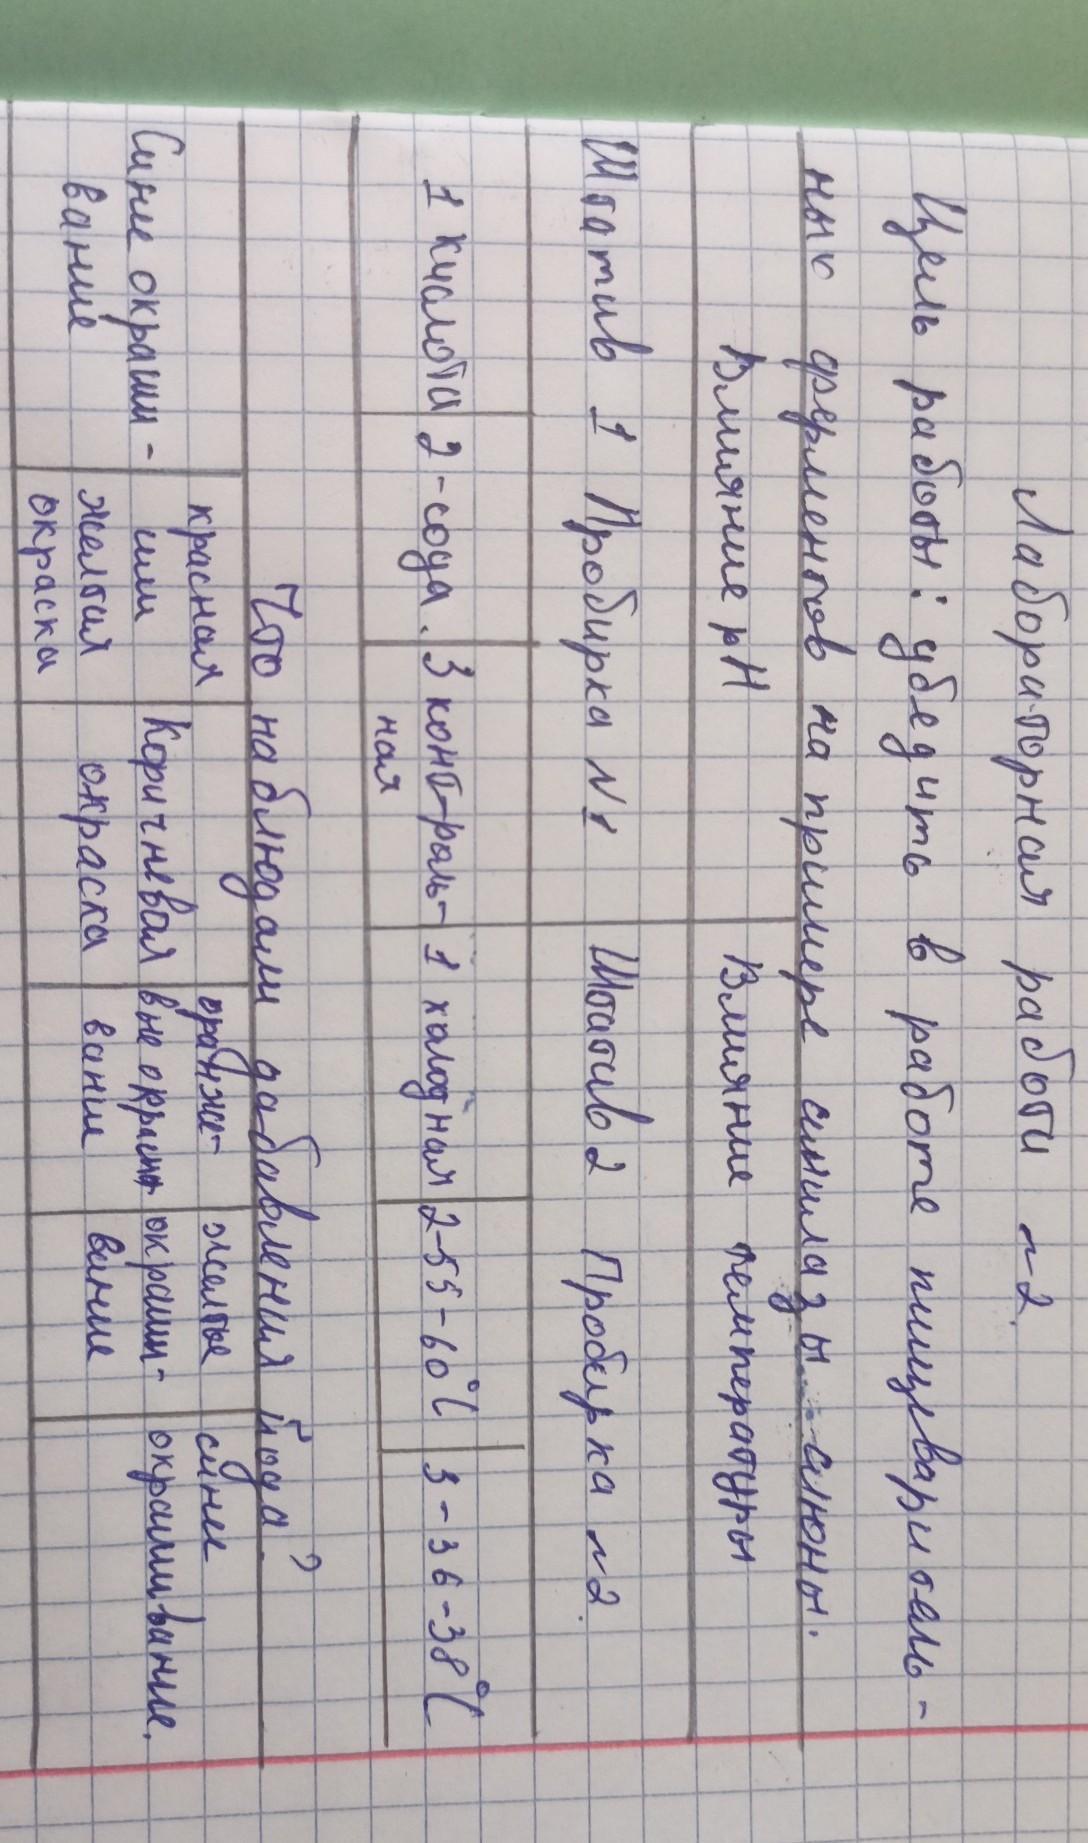 Лабораторная работа №2.
Цель работы: убедить в работе пищеваритель-
ных ферментов на примере амилазы слюны.
Влияние pH
Влияние температуры
Штатив 1 Пробирка №1
Штатив 2 Пробирка №2.
1 кислота
2-сода.
3 контроль-
ная
1 халодная
2-55-60°С
3-36-38°С
Что наблюдали добавления йода?
Сине окраши-
вание
красная
или
желтая
окраска
Коричневая
окраска
оранже-
вое окраши-
вание
желтое
окраши-
вание
синее
окрашивание.